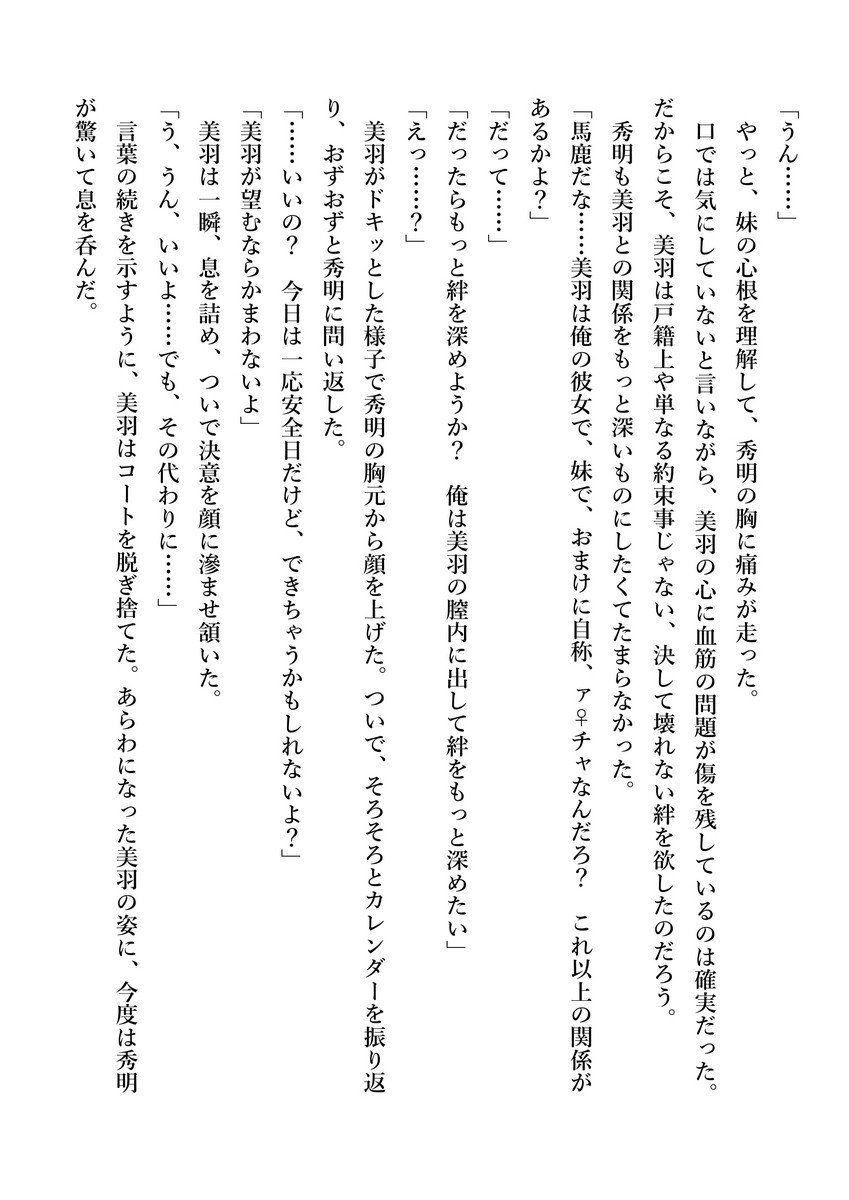 「うん……」
やっと、妹の心根を理解して、秀明の胸に痛みが走った。
口では気にしていないと言いながら、美羽の心に血筋の問題が傷を残しているのは確実だった。
だからこそ、美羽は戸籍上や単なる約束事じゃない、決して壊れない絆を欲したのだろう。
秀明も美羽との関係をもっと深いものにしたくてたまらなかった。
「馬鹿だな……美羽は俺の彼女で、妹で、おまけに自称、ァ♀チャなんだろ？　これ以上の関係が
あるかよ？」
「だって……」
「だったらもっと絆を深めようか？　俺は美羽の膣内に出して絆をもっと深めたい」
「えっ……？」
美羽がドキッとした様子で秀明の胸元から顔を上げた。ついで、そろそろとカレンダーを振り返
り、おずおずと秀明に問い返した。
「……いいの？　今日は一応安全日だけど、できちゃうかもしれないよ？」
「美羽が望むならかまわないよ」
美羽は一瞬、息を詰め、ついで決意を顔に滲ませ頷いた。
「う、うん、いいよ……でも、その代わりに……」
言葉の続きを示すように、美羽はコートを脱ぎ捨てた。あらわになった美羽の姿に、今度は秀明
が驚いて息を呑んだ。